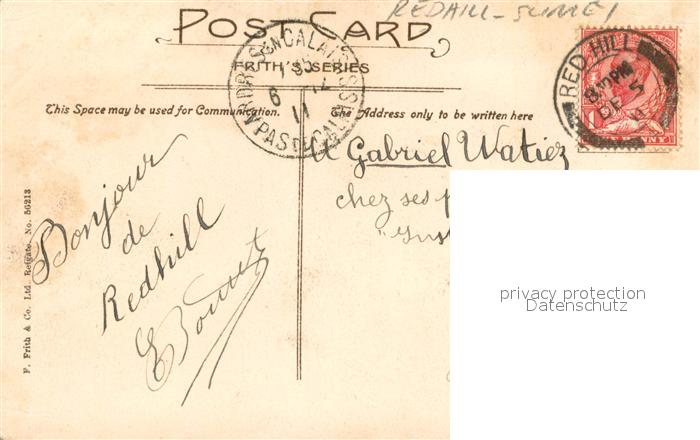 REDHILL - SURREY
POST CARD
FRITH'S SERIES
This Space may be used for Communication.
The Address only to be written here
RED HILL
8 PM
DE 5
11
ARDRES EN CALAISIS
6 12
11
PAS DE CALAIS
Gabriel Watiez
chez ses
Bonjour
de
Redhill
F. Frith & Co. Ltd., Reigate. No. 56213
privacy protection
Datenschutz